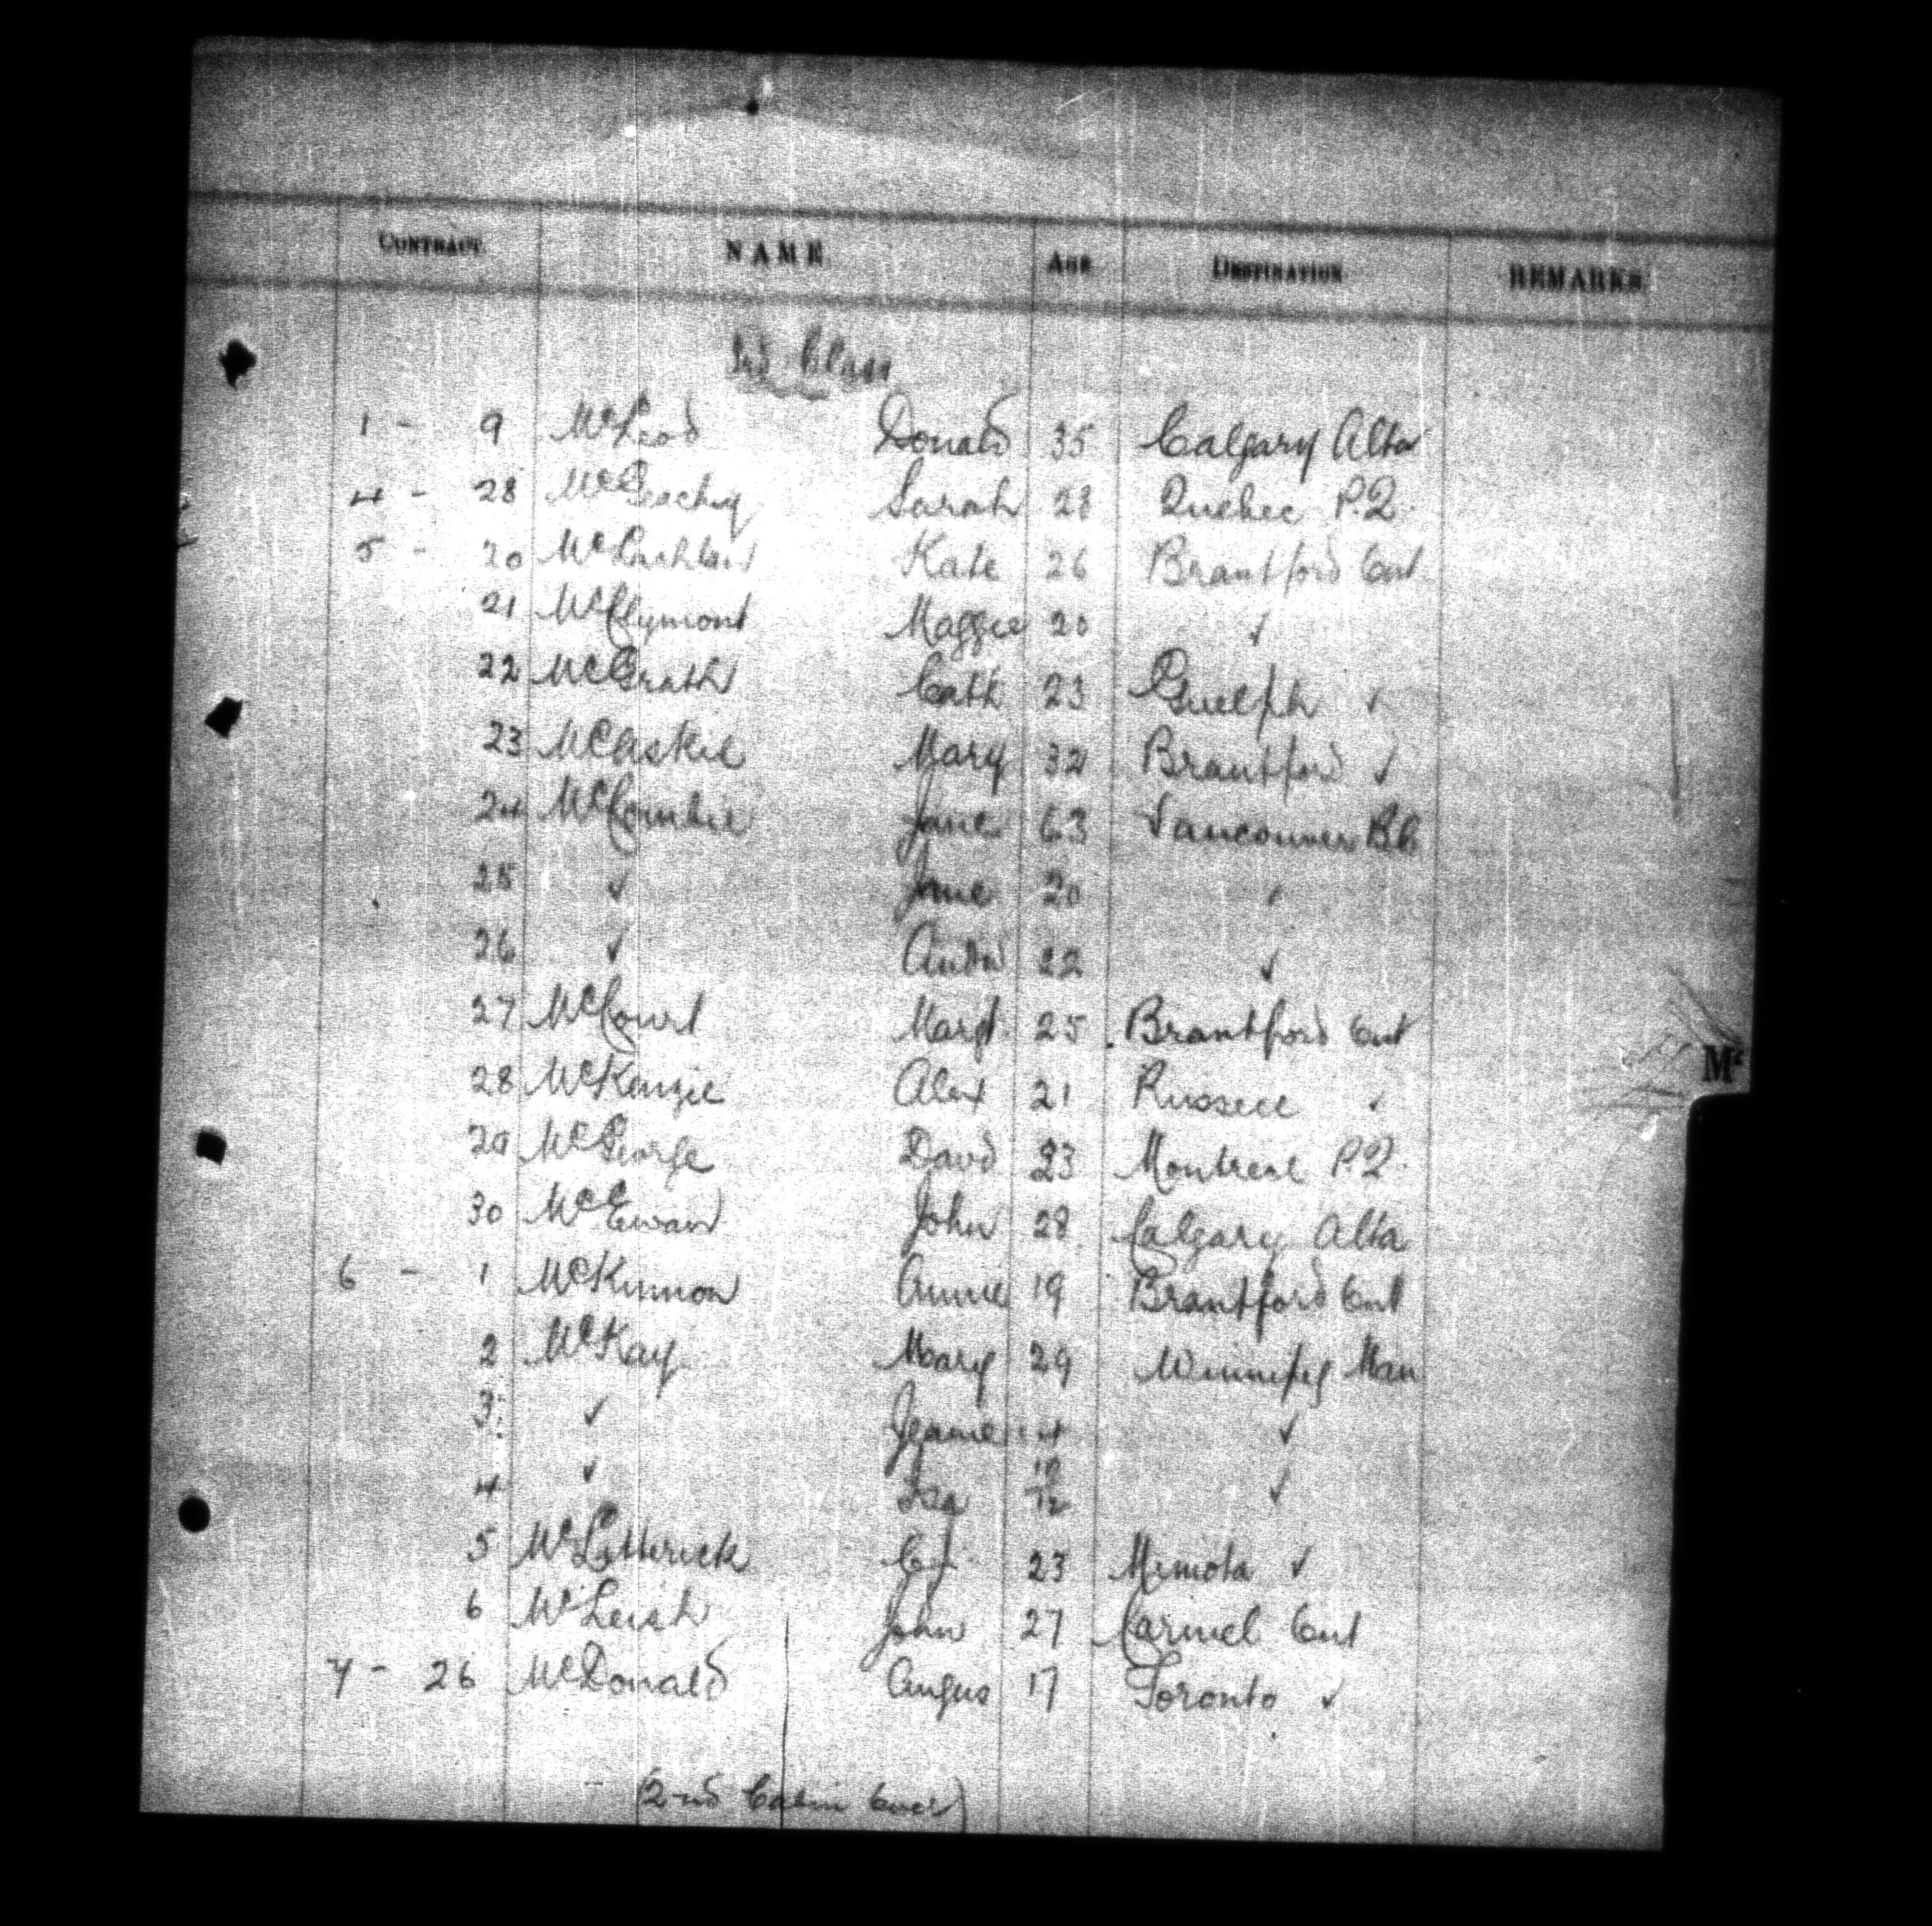 CONTRACT. NAME. AGE DESTINATION. REMARKS.
3rd Class
1 - 9 McLeod Donald 35 Calgary Alta
4 - 28 McGeachy Sarah 28 Quebec P.Q.
5 - 20 McLachlan Kate 26 Brantford Ont
21 McClymont Maggie 20 ✓
22 McGrath Cath 23 Guelph ✓
23 McCaskie Mary 32 Brantford ✓
24 McCombie Jane 63 Vancouver B.C.
25 ✓ Jane 20 ✓
26 ✓ Andw 22 ✓
27 McCourt Margt 25 Brantford Ont
28 McKenzie Alex 21 Russell ✓
29 McGeorge David 23 Montreal P.Q.
30 McEwan John 28 Calgary Alta
6 - 1 McKinnon Annie 19 Brantford Ont
2 McKay Mary 29 Winnipeg Man
3 ✓ Jeanie 4 ✓
4 ✓ Isa 10/12 ✓
5 McLetterick 23 Mimota ✓
6 McLeish John 27 Carmel Ont
7 - 26 McDonald Angus 17 Toronto ✓
(2nd Cabin Over)
Mc